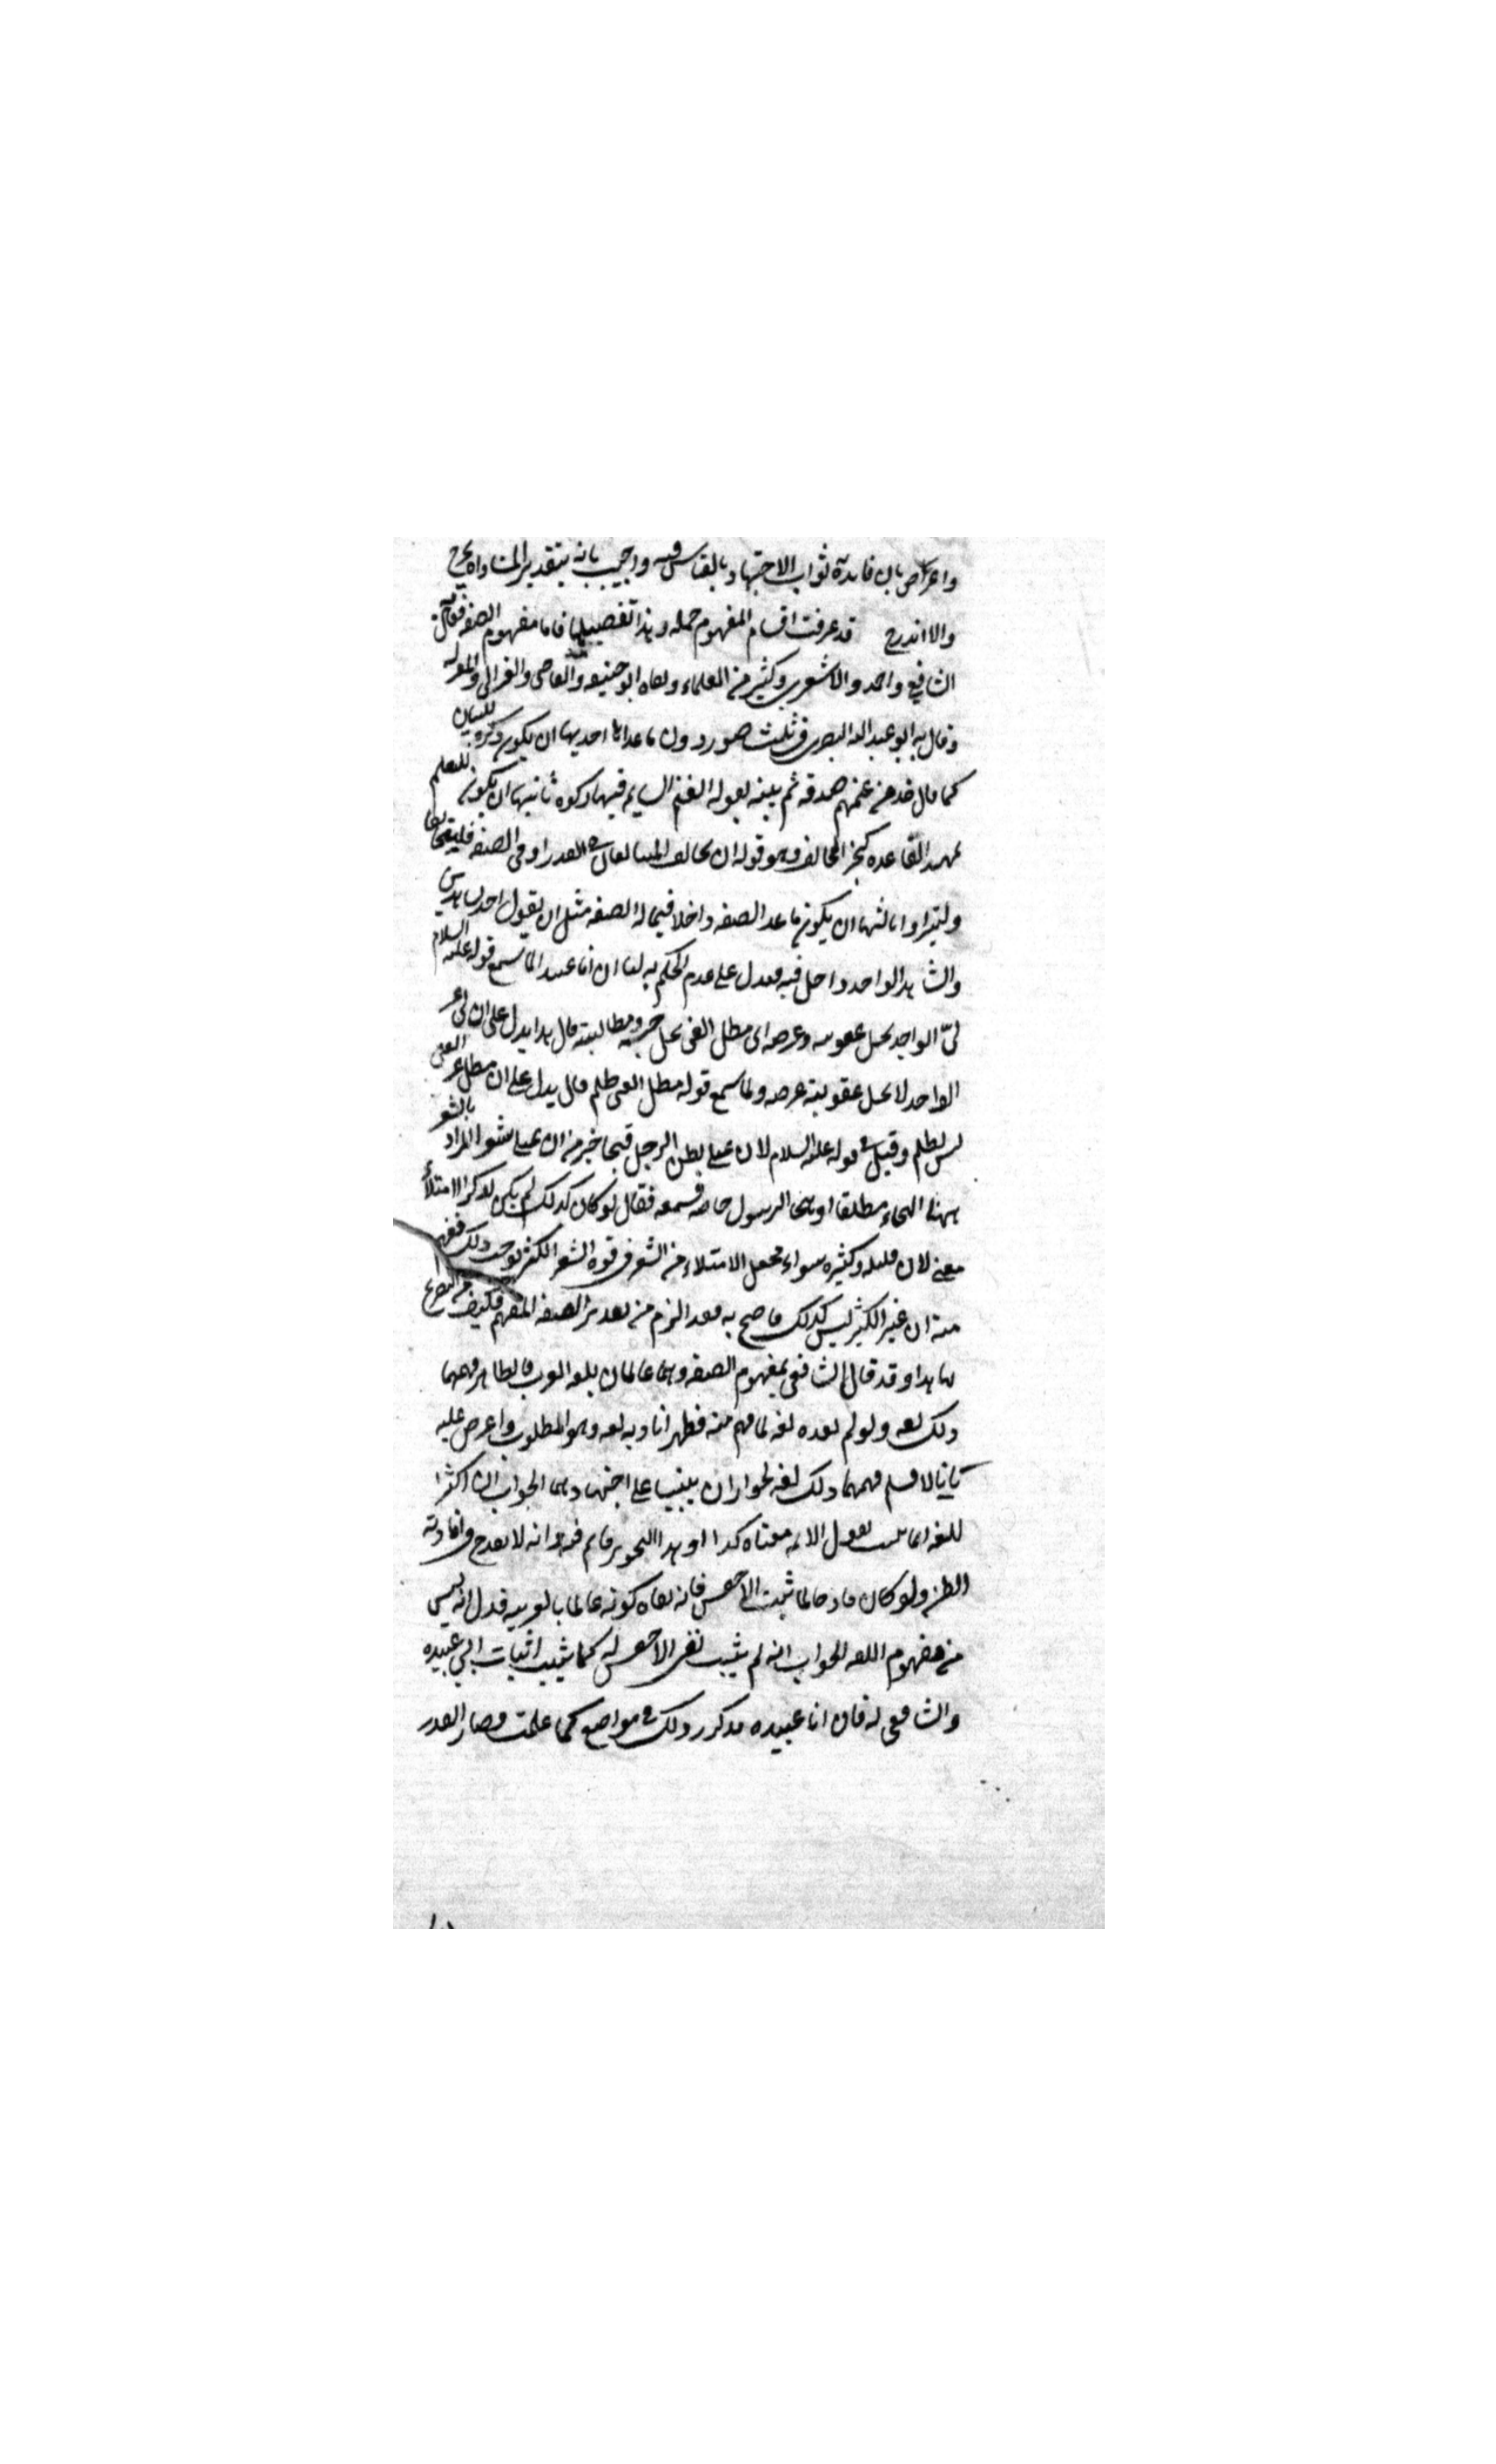 واعترض بان فايدته ثواب الاجتهاد بالقياس فيه واجيب بانه بتقدير المساواه يخرج
والا اندرج قد عرفت اقسام المفهوم جمله وهذا تفصيلها فاما مفهوم الصفه فقال به
الشافعي واحمد والاشعري وكثير من العلماء ونفاه ابو حنيفه والقاضي والغزالي والمعتزله
وقال به ابو عبد الله البصري في ثلث صور دون ما عداها احديها ان يكون ذكره للبيان
كما قال خذ من غنمهم صدقه ثم بينه بقوله الغنم السايمه فيها زكوه ثانيها ان يكون للتعليم
تمهيد القاعده كخبر التحالف وهو قوله ان تخالف المتبايعان في القدر او في الصفه فليتحالفا
وليترادا ثالثها ان يكون ما عدا الصفه داخلا فيما له الصفه مثل ان يقول احكم بشاهدين
والشاهد الواحد داخل فيه فيدل على عدم الحكم به لنا ان ابا عبيد لما سمع قوله عليه السلام
ليّ الواجد يحل عقوبته وعرضه اى مطل الغنى يحل حبسه ومطالبته قال هذا يدل على ان لي غير
الواجد لا يحل عقوبته عرضه ولما سمع قوله مطل الغنى ظلم قال يدل على ان مطل غير الغنى
ليس بظلم وقيل في قوله عليه السلام لان يمتلي بطن الرجل قيحا خير من ان يمتلي شعرا المراد بالشعر
ههنا الهجاء مطلقا او هجا الرسول خاصه فسمعه فقال لو كان كذلك لم يكن لذكر الامتلاء
معنى لان قليله وكثيره سواء فجعل الامتلاء من الشعر في قوه الشعر الكثير يوجب ذلك ففهم
منه ان غير الكثير ليس كذلك فاحتج به فقد الزم من تقدير الصفه المفهوم فكيف من التصريح
بها هذا وقد قال الشافعي بمفهوم الصفه وهما عالمان بلغه العرب فالظاهر فهمهما
ذلك لغه ولو لم يفده لغه لما فهم منه فظهر افادته لغه وهو المطلوب واعترض عليه
بانا لا نسلم فهمهما ذلك لغه لجواز ان يبنيا على اجتهادهما الجواب ان اكثر
اللغه انما يثبت بقول الائمه معناه كذا وهذا التجويز قايم فيه وانه لا يقدح في افادته
الظن ولو كان قادحا لما ثبت الاخفش فانه نفاه كونه عالما بالعربيه فدل انه ليس
من مفهوم اللغه الجواب انه لم يثبت نفى الاخفش له كما يثبت اثبات ابي عبيده
والشافعي له فان ابا عبيده قد كرر ذلك في مواضع كما علمت فصار القدر